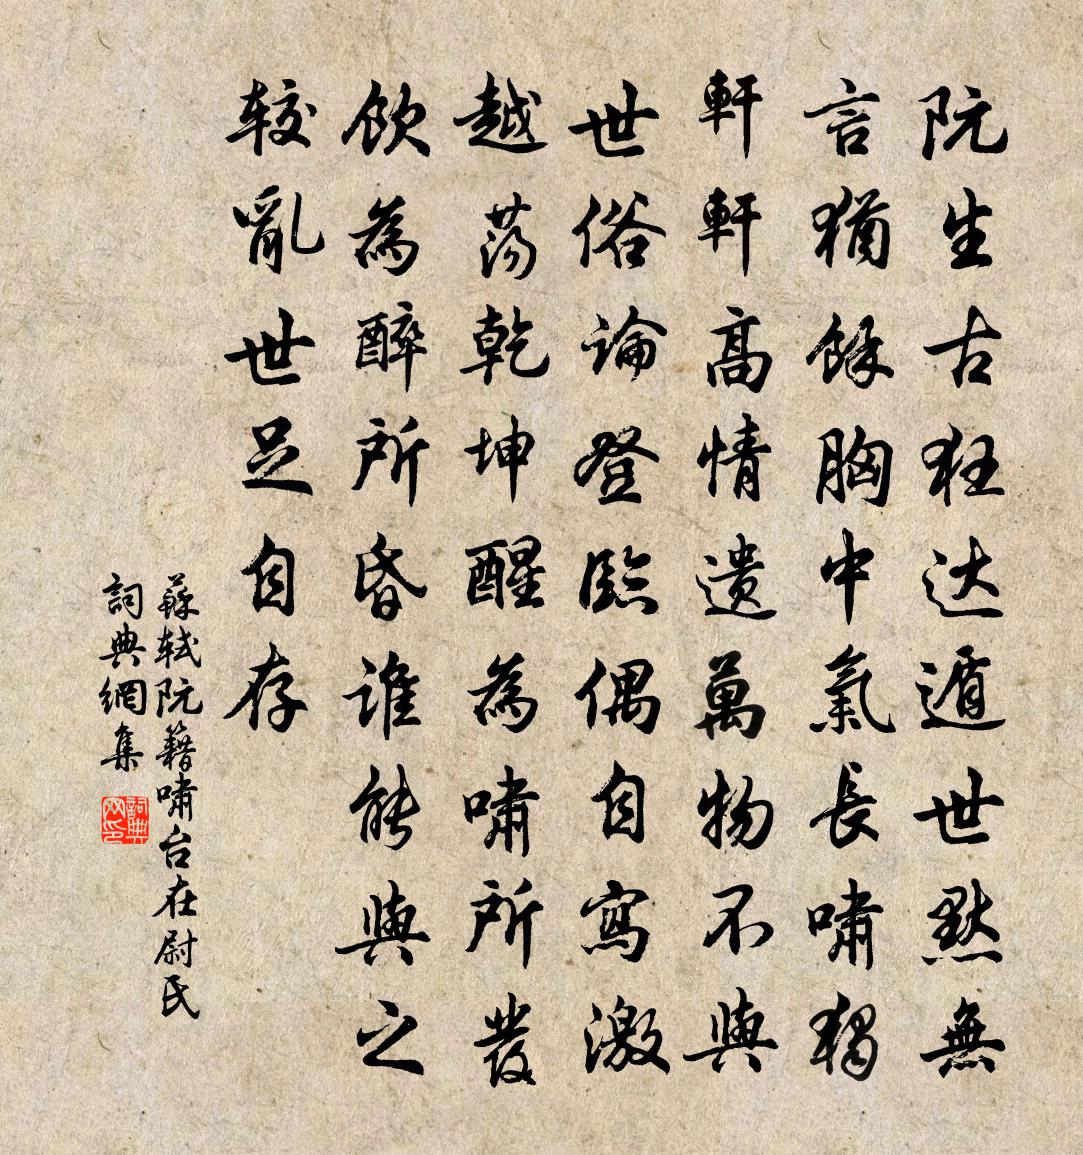 阮生古狂达遁世默無
言猶餘胸中氣長啸獨
軒軒高情遗萬物不與
世俗論登臨偶自寫激
越荡乾坤醒為啸所發
飲為醉所昏誰能與之
较亂世足自存
蘇轼阮籍啸台在尉氏
詞典網集
詞典网印